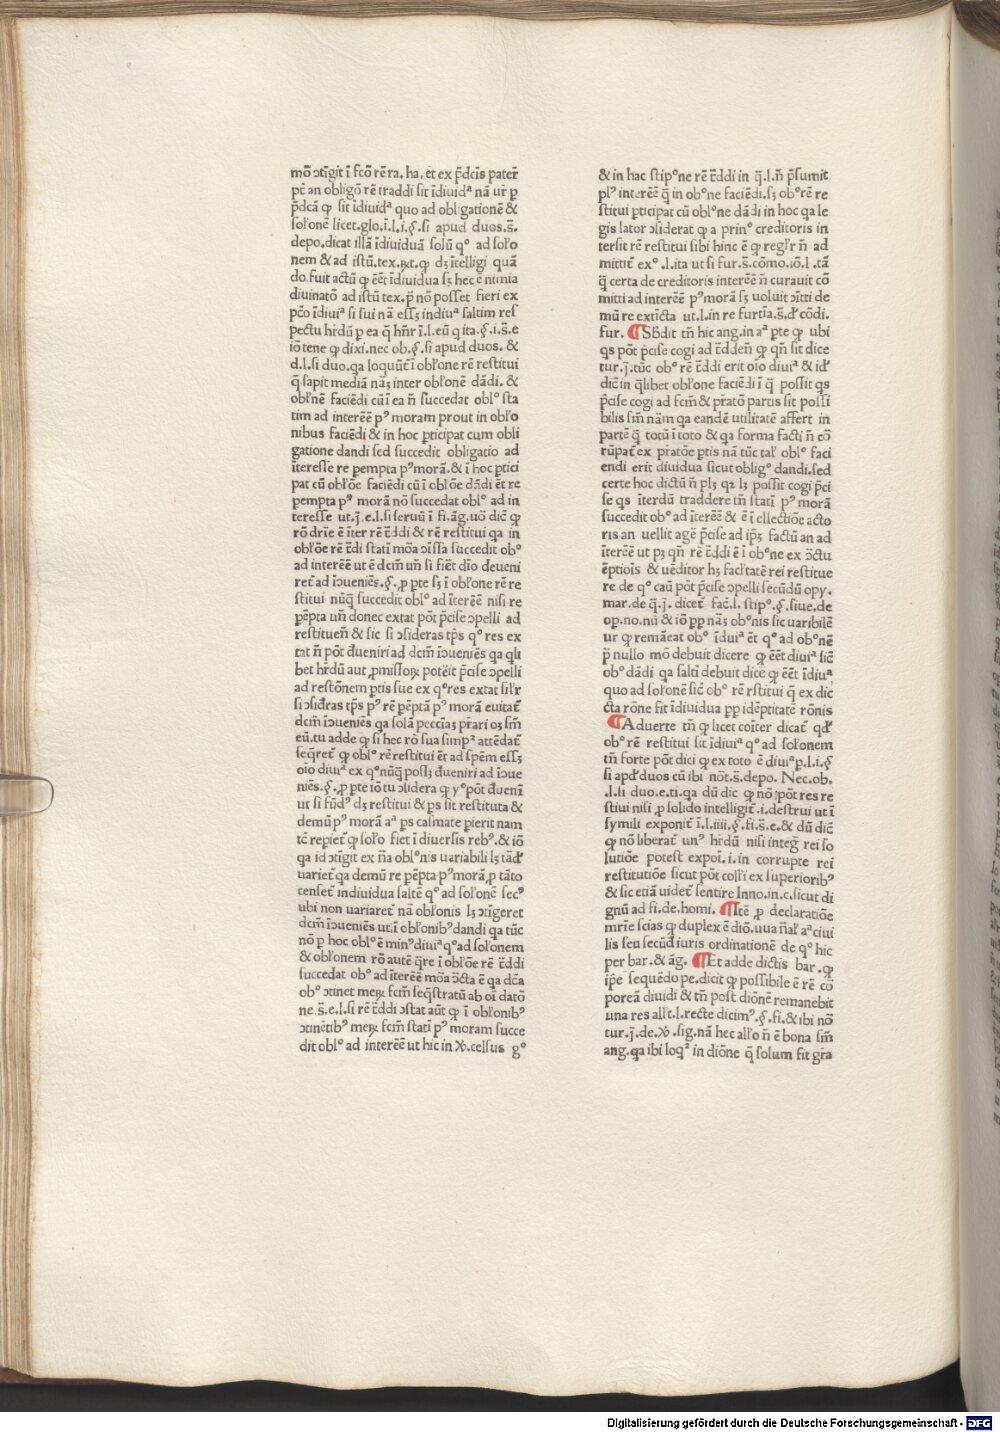 mō ↄtīgit ī fcō rē ra. ha. et ex p̄dcīs pater̄
pc̄ an obligō rē traddi sit īdiuidᵃ nā ur̄ ꝑ
p̄dcā ꝙ sit īdiuidᵃ quo ad obligationē &
soloͫnē licet.glo.ī.l.i.§.si apud duos.s̄.
depo.dicat illā īdiuiduā solū qᵒ ad solo
nem & ad istū.tex.ꝶt.ꝙ dꝫ ītelligi quā
do fuit actū ꝙ eēt īdiuidua sꝫ hec ē nimia
diuinatō ad istū tex.p̄ nō posset fieri ex
pc̄o īdiuiᵃ si sui nā essꝫ indiuᵃ saltim res
pectu hr̄dū ꝑ ea q̄ hn̄r ī.l.eū q ita.§.i.s̄.e
iō tene ꝙ dixi.nec ob.§.si apud duos. &
d.l.si duo.qa loquūt̄ ī obłone rē restitui
q̄ sapit mediā nāꝫ inter obłonē dādi. &
obłnē faciēdi cū ī ea n̄ succedat oblᵒ sta
tim ad intereē pꝰ moram prout in obło
nibus faciēdi & in hoc ꝑticipat cum obli
gatione dandi sed succedit obligatio ad
īteresse re pempta pꝰ morā.& ī hoc ꝑtici
pat cū obłōe faciēdi cū ī obłōe dādi ēt re
pempta pꝰ morā nō succedat oblᵒ ad in
teresse ut.j̄.e.l.si seruū ī fi.āg.uō dic̄ ꝙ
rō dr̄ie ē iter rē t̄ddi & rē restitui qa in
obłōe rē t̄di statī mōa ↄīssa succedit obᵒ
ad intereē ut ē dcm̄ un̄ si fiēt dīo deueni
ret̄ ad īↄueniēs.§.ꝓ pte sꝫ ī obłone rē re
stitui nūq̄ succedit oblᵒ ad ītereē nisi re
pēpta un̄ donec extat pōt p̄cise ↄpelli ad
restituen̄ & sic si ↄsideras tp̄s qᵒ res ex
tat n̄ pōt đueniri ad dcm̄ īↄueniēs qa qłi
bet hr̄dū aut ꝓmissoꝝ potēit p̄cise ↄpelli
ad restōnem ptis sue ex qᵒ res extat siłr
si ↄsiđras tp̄s pꝰ rē pēptā pꝰ morā euitat̄
dcm̄ īↄueniēs qa solā peccīaꝫ p̄rari oꝫ sm̄
eū.tu adde ꝙ si hec rō sua simpᵃ attēdat̄
seq̄ret̄ ꝙ oblᵒ rē restitui ēt ad spēm essꝫ
oīo diuiᵃ ex qᵒ nūq̄ possꝫ đueniri ad īↄue
niēs.§.ꝓ pte iō tu ↄsidera ꝙ yᵒ pōt đuenī
ut si fūđꝰ dꝫ restitui & ps sit restituta &
demū pꝰ morā aᵃ ps casmate pierit nam
tc̄ repiet̄ ꝙ soło fiet ī diuersis rebꝰ.& iō
qa id ↄtīgit ex n̄a oblᵒnis uariabili lꝫ tāđ
uariet̄ qa demū re pēpta pꝰ morā ꝓ tāto
censet̄ indiuidua saltē qᵒ ad solonē secꝰ
ubi non uariaret̄ nā obłonis lꝫ ↄtīgeret
dcm̄ īↄueniēs ut.ī obłonibꝰ dandi qa tūc
nō ꝑ hoc oblᵒ ē minꝰ diuiᵃ qᵒ ad solonem
& obłonem rō autē q̄re ī obłōe rē t̄ddi
succedat obᵒ ad ītereē mōa ↄ̄cta ē qa dc̄a
obᵒ ↄtinet meꝝ fcm̄ seq̄stratū ab oī datō
ne.s̄.e.l.si rē t̄ddi ↄstat aūt ꝙ ī obłonibꝰ
ↄtinētibꝰ meꝝ fcm̄ statī pꝰ moram succe
dit oblᵒ ad intereē ut hic in ꝟ.celsus gᵒ
& in hac stipᵒne rē t̄ddi in q̄.l.n̄ p̄sumit
plꝰ intereē q̄ in obᵒne faciēdi.sꝫ obᵒ rē re
stitui ꝑticipat cū oblᵒne dādi in hoc qa le
gis lator ↄsiderat ꝙ a prinᵒ creditoris in
tersit rē restitui sibi hinc ē ꝙ reglr̄ n̄ ad
mittit̄ exᵒ.l.ita ut si fur.s̄.cōmo.iō.l.tā
q̄ certa de creditoris intereē n̄ curauit cō
mitti ad intereē pꝰ morā sꝫ uoluit ↄīti de
mū re extīcta ut.l.in re furtīa.s̄.đ cōdi.
fur. ¶ Sb̄dit tn̄ hic ang.in aᵃ pte ꝙ ubi
qs pōt p̄cise cogi ad t̄dden̄ ꝙ qn̄ sit dice
tur.j̄.tūc obᵒ rē t̄ddi erit oīo diuiᵃ & iđ
dic̄ in q̄libet obłone faciēdi ī q̄ possit qs
p̄cise cogi ad fcm̄ & p̄ratō partis sit possi
bilis sim̄ nām qa eandē utilitatē affert in
partē q̄ totū ī toto & qa forma facti n̄ cō
rūpat̄ ex p̄ratōe ptis nā tūc talꝰ oblᵒ faci
endi erit diuidua sicut obligᵒ dandi.sed
certe hoc dictū n̄ plꝫ q2 lꝫ possit cogi p̄ci
se qs īterdū traddere tn̄ statī pꝰ morā
succedit obᵒ ad ītereē & ē ī ellectiōe acto
ris an uellit agē p̄cise ad ipꝫ factū an ad
ītereē ut pꝫ qn̄ rē t̄ddi ē ī obᵒne ex ↄ̄ctu
ēptiōis & uēditor hꝫ facłtatē rei restitue
re de qᵒ caū pōt p̄cise ↄpelli secūdū opy.
mar.de q̄.j̄.dicet̄ fac̄.l. stipᵒ.§.siue.de
op.no.nū & iō pp nāꝫ obᵒnis sic uaribilē
ur ꝙ remāeat obᵒ īdiuiᵃ ēt qᵒ ad obᵒnē
p̄ nullo mō debuit dicere ꝙ ēēt diuiᵃ sic̄
obᵒ dādi qa saltī debuit dicē ꝙ ēēt īdiuᵃ
quo ad solonē sic̄ obᵒ rē rstitui q̄ ex dic
c̄ta rōne fit īdiuidua pp idēptitatē rōnis
¶ Aduerte tn̄ ꝙ licet coīter dicat̄ qđ
obᵒ rē restitui sit īdiuiᵃ qᵒ ad solonem
tn̄ forte pōt dici ꝙ ex toto ē diuiᵃ ꝑ.l.i.§
si apđ duos cū ibi nōt.s̄.depo. Nec.ob.
.l.si duo.e.ti.qa dū dic̄ ꝙ nō pōt res re
stiui nisi ꝓ solido intelligit̄.i.destrui ut ī
symili exponit̄ ī.l.iiii.§.fi.s̄.e.& dū dic̄
ꝙ nō liberat̄ unꝰ hr̄dū nisi inteḡ rei so
lutiōe potest expoī.i.in corrupte rei
restitutiōe sicut pōt colłi ex superioribꝰ
& sic etiā uidet̄ sentire Inno.in.c.sicut di
gnū ad fi.de.homi. ¶ Itē ꝓ declaratiōe
mr̄ie scias ꝙ duplex ē diō.uua n̄alꝰ aᵃ ciui
lis seu secūđ iuris ordinationē de qᵒ hic
per bar.& āg. ¶ Et adde dictis bar.ꝙ
ip̄e sequēdo pe.dicit ꝙ possibile ē rē cō
poreā diuidi & tn̄ post diōnē remanebit
una res ałłt̄.l.recte dicimꝰ.§.fi.& ibi nō
tur.j̄.de.ꝟ.sig.nā hec allᵒo n̄ ē bona sm̄
ang.qa ibi loqᵃ in diōne q̄ solum fit gr̄a
Digitalisierung gefördert durch die Deutsche Forschungsgemeinschaft - DFG